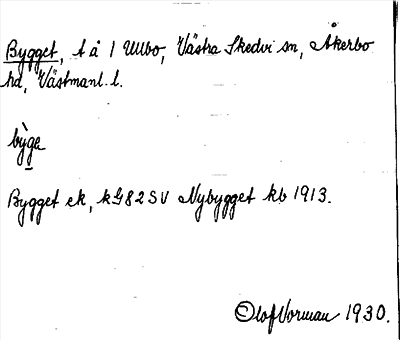 Bygget, t å 1 Ullbo, Västra Skedvi sn, Åkerbo
hd, Västmanl. l.
by̍ge
Bygget ek, kG82SV Nybygget kb 1913.
Olof Vorman 1930.